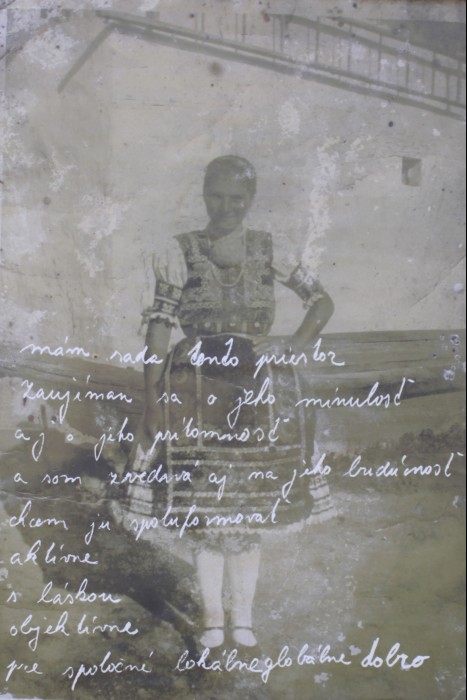 mám rada tento priestor
Zaujímam sa o jeho minulosť
aj o jeho prítomnosť
a som zvedavá aj na jeho budúcnosť
chcem ju spoluformovať
aktívne
s láskou
objektívne
pre spoločné lokálneglobálne dobro